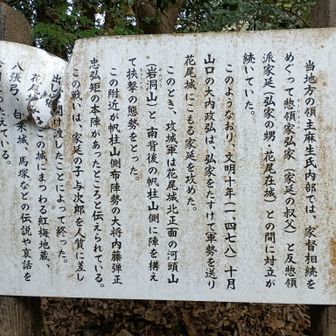 当地方の領主麻生氏内部では、家督相続を
めぐって惣領家弘家（家延の叔父）と反惣領
派家延（弘家の甥・花尾在城）との間に対立が
続いていた。
このようなおり、文明十年（一、四七八）十月
山口の大内政弘は、弘家をたすけて軍勢を送り
花尾城にこもる家延を攻めた。
このとき、攻城軍は花尾城北正面の河頭山
（岩洞山）と南背後の帆柱山側に陣を構え
て挟撃の態勢をとった。
この附近が帆柱山側布陣勢の大将内藤弾正
忠弘矩の本陣があったところと伝えられている。
この戦いは、家延の子与次郎を人質に差し
出し
開け渡したことによって終った。
花尾
の城にまつわる紅梅地蔵、
八張弓
白米城、馬塚などの伝説や哀話を
えている。